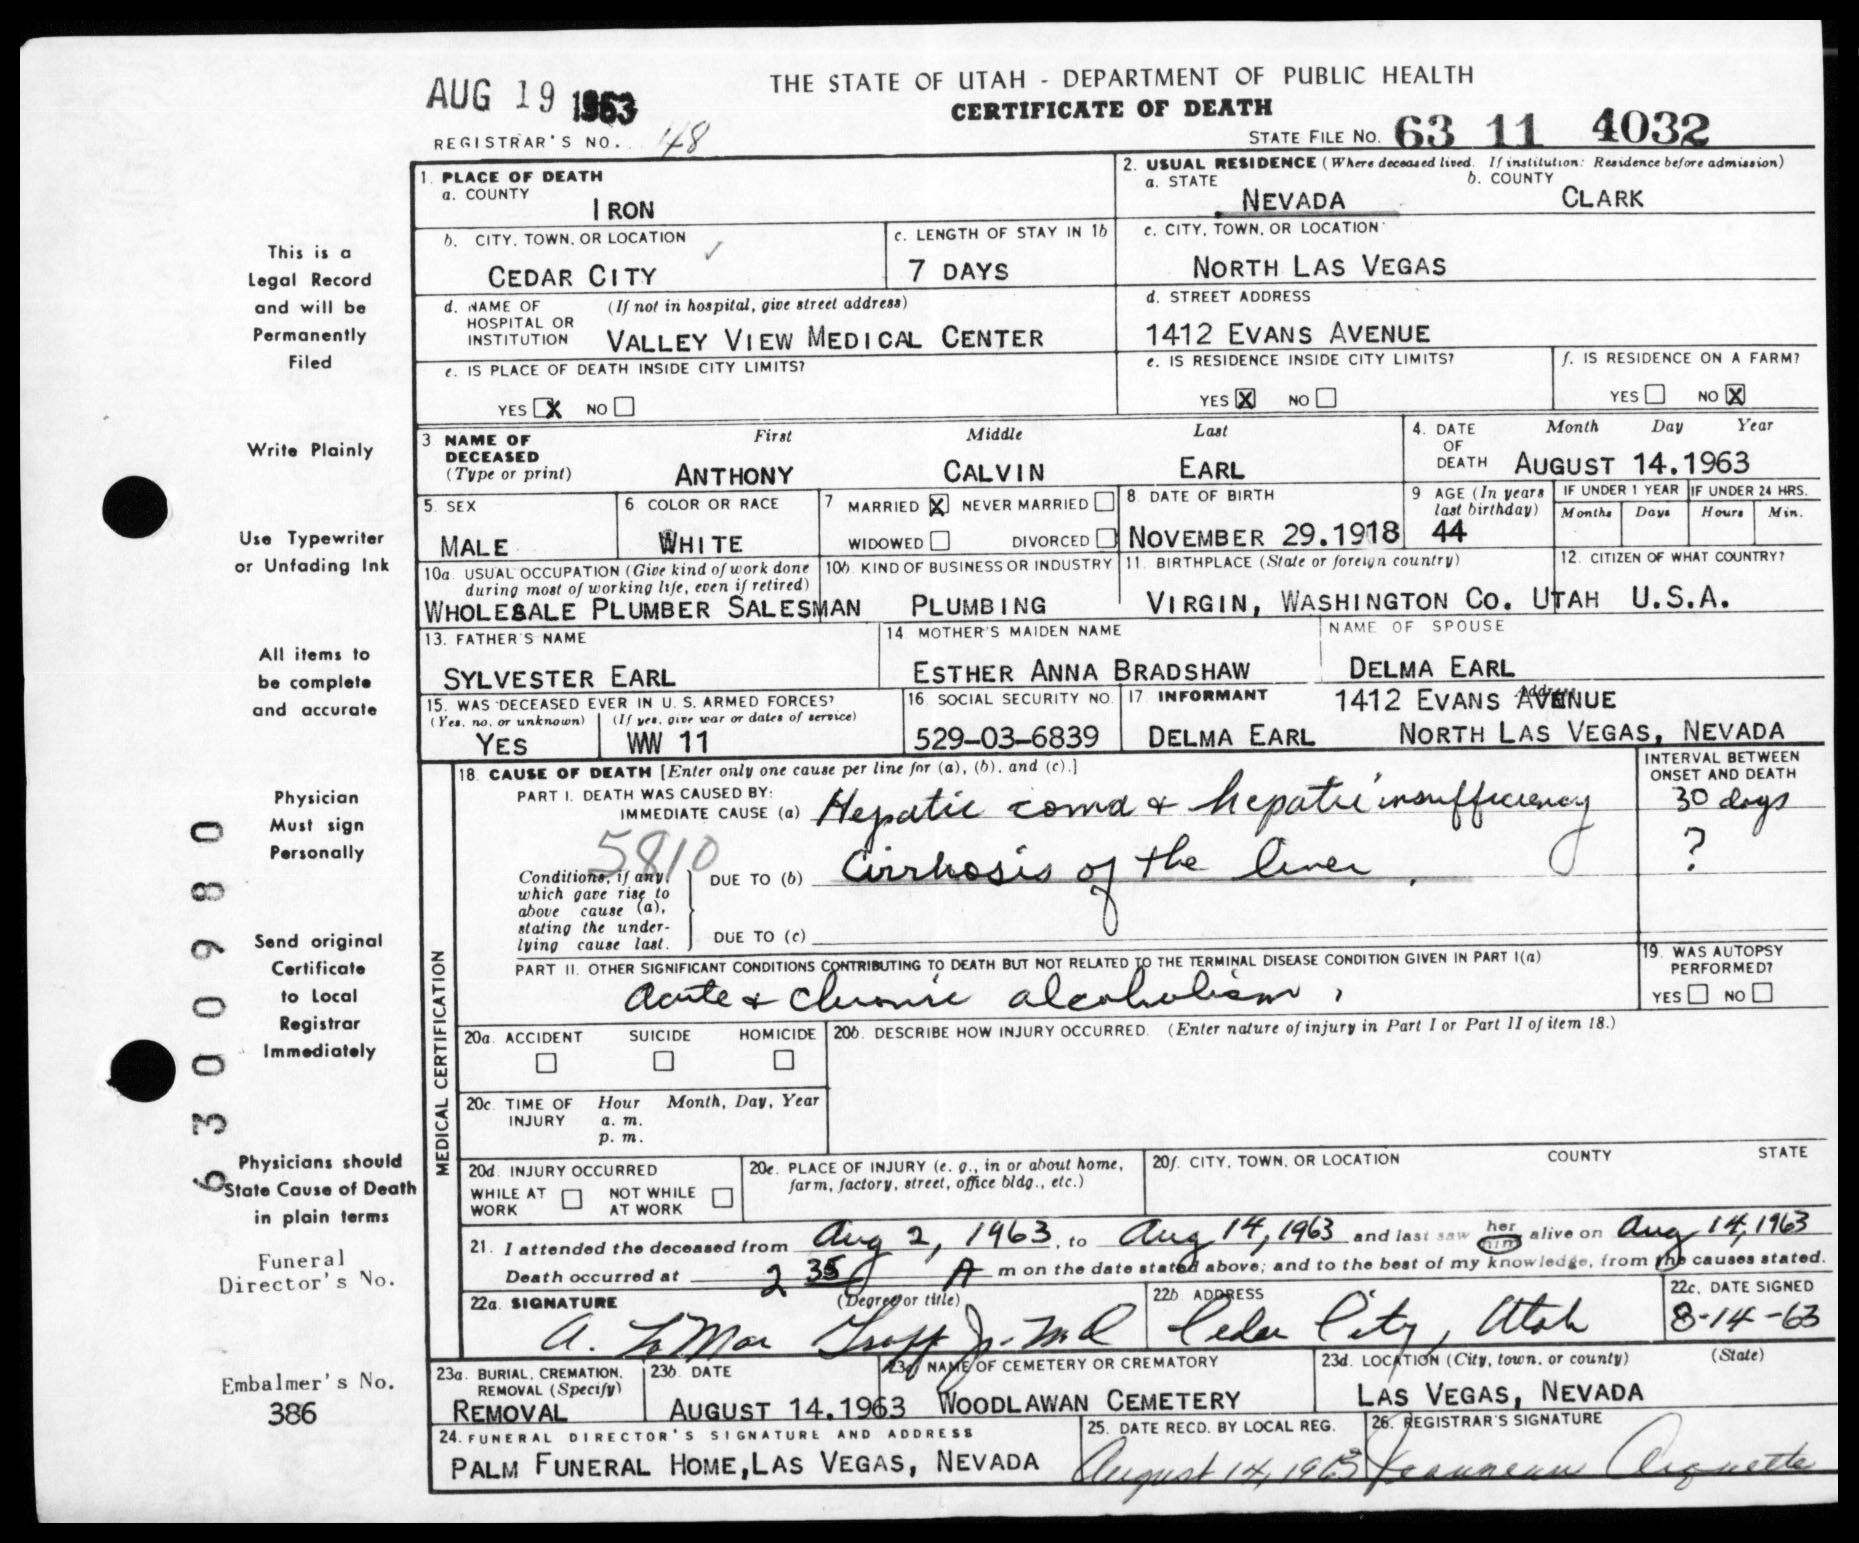 THE STATE OF UTAH - DEPARTMENT OF PUBLIC HEALTH
AUG 19 1963
CERTIFICATE OF DEATH
REGISTRAR'S NO. 48
STATE FILE NO. 63 11 4032
1. PLACE OF DEATH
a. COUNTY
IRON
2. USUAL RESIDENCE (Where deceased lived. If institution: Residence before admission)
a. STATE b. COUNTY
NEVADA CLARK
b. CITY, TOWN, OR LOCATION
CEDAR CITY
c. LENGTH OF STAY IN 1b
7 DAYS
c. CITY, TOWN, OR LOCATION
NORTH LAS VEGAS
d. NAME OF (If not in hospital, give street address)
HOSPITAL OR
INSTITUTION VALLEY VIEW MEDICAL CENTER
d. STREET ADDRESS
1412 EVANS AVENUE
e. IS PLACE OF DEATH INSIDE CITY LIMITS?
YES X NO
e. IS RESIDENCE INSIDE CITY LIMITS?
YES X NO
f. IS RESIDENCE ON A FARM?
YES NO X
3 NAME OF DECEASED (Type or print)
First Middle Last
ANTHONY CALVIN EARL
4. DATE OF DEATH
Month Day Year
AUGUST 14.1963
5. SEX
MALE
6 COLOR OR RACE
WHITE
7 MARRIED X NEVER MARRIED
WIDOWED DIVORCED
8 DATE OF BIRTH
NOVEMBER 29.1918
9 AGE (In years last birthday)
44
IF UNDER 1 YEAR IF UNDER 24 HRS.
Months Days Hours Min.
10a. USUAL OCCUPATION (Give kind of work done
during most of working life, even if retired)
WHOLESALE PLUMBER SALESMAN
10b. KIND OF BUSINESS OR INDUSTRY
PLUMBING
11. BIRTHPLACE (State or foreign country)
VIRGIN, WASHINGTON CO. UTAH
12. CITIZEN OF WHAT COUNTRY?
U.S.A.
13. FATHER'S NAME
SYLVESTER EARL
14. MOTHER'S MAIDEN NAME
ESTHER ANNA BRADSHAW
NAME OF SPOUSE
DELMA EARL
15. WAS DECEASED EVER IN U. S. ARMED FORCES?
(Yes, no, or unknown) (If yes, give war or dates of service)
YES WW 11
16. SOCIAL SECURITY NO.
529-03-6839
17. INFORMANT Address
1412 EVANS AVENUE
DELMA EARL NORTH LAS VEGAS, NEVADA
18. CAUSE OF DEATH [Enter only one cause per line for (a), (b), and (c).]
INTERVAL BETWEEN
ONSET AND DEATH
PART I. DEATH WAS CAUSED BY:
IMMEDIATE CAUSE (a) Hepatic coma & hepatic insufficiency
30 days
5810
Conditions, if any,
which gave rise to
above cause (a),
stating the under-
lying cause last.
DUE TO (b) Cirrhosis of the liver
?
DUE TO (c)
PART II. OTHER SIGNIFICANT CONDITIONS CONTRIBUTING TO DEATH BUT NOT RELATED TO THE TERMINAL DISEASE CONDITION GIVEN IN PART I(a)
Acute & chronic alcoholism,
19. WAS AUTOPSY
PERFORMED?
YES NO
MEDICAL CERTIFICATION
20a. ACCIDENT SUICIDE HOMICIDE
20b. DESCRIBE HOW INJURY OCCURRED. (Enter nature of injury in Part I or Part II of item 18.)
20c. TIME OF Hour Month, Day, Year
INJURY a. m.
p. m.
20d. INJURY OCCURRED
WHILE AT WORK NOT WHILE AT WORK
20e. PLACE OF INJURY (e. g., in or about home,
farm, factory, street, office bldg., etc.)
20f. CITY, TOWN, OR LOCATION COUNTY STATE
21. I attended the deceased from Aug 2, 1963, to Aug 14, 1963 and last saw her him alive on Aug 14, 1963
Death occurred at 2 35 A m on the date stated above; and to the best of my knowledge, from the causes stated.
22a. SIGNATURE (Degree or title)
A. LaMar Graff Jr. MD
22b. ADDRESS
Cedar City, Utah
22c. DATE SIGNED
8-14-63
23a. BURIAL, CREMATION,
REMOVAL (Specify)
REMOVAL
23b. DATE
AUGUST 14.1963
23c. NAME OF CEMETERY OR CREMATORY
WOODLAWAN CEMETERY
23d. LOCATION (City, town, or county) (State)
LAS VEGAS, NEVADA
24. FUNERAL DIRECTOR'S SIGNATURE AND ADDRESS
PALM FUNERAL HOME, LAS VEGAS, NEVADA
25. DATE RECD. BY LOCAL REG.
August 14, 1963
26. REGISTRAR'S SIGNATURE
Arquette
This is a
Legal Record
and will be
Permanently
Filed
Write Plainly
Use Typewriter
or Unfading Ink
All items to
be complete
and accurate
Physician
Must sign
Personally
Send original
Certificate
to Local
Registrar
Immediately
Physicians should
State Cause of Death
in plain terms
Funeral
Director's No.
Embalmer's No.
386
6300980